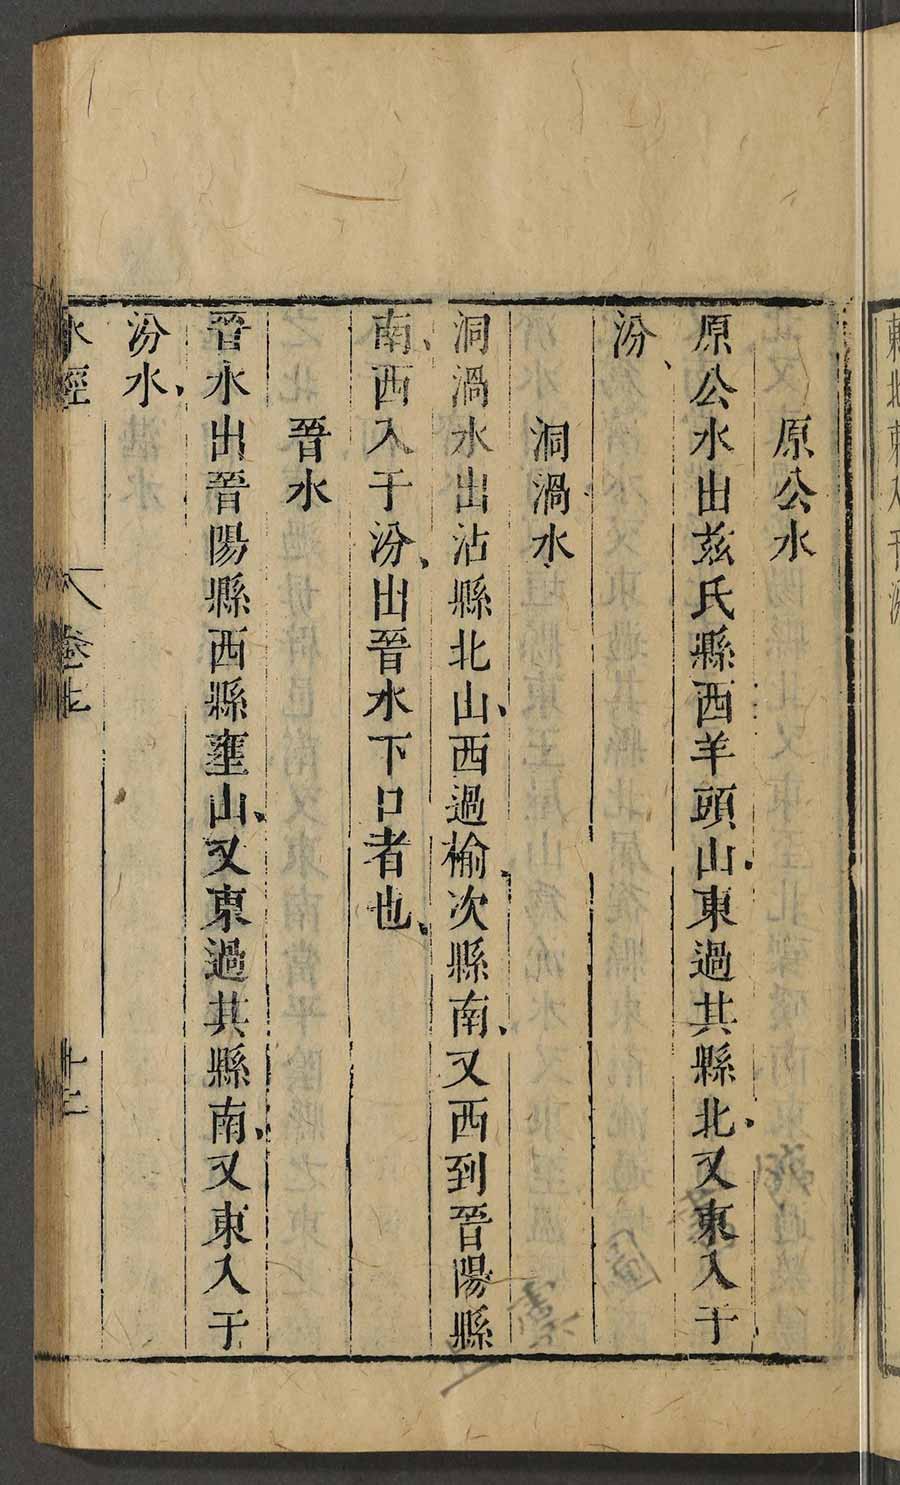 原公水
原公水出茲氏縣西羊頭山、東過其縣北、又東入于
汾、
洞渦水
洞渦水出沾縣北山、西過榆次縣南、又西到晉陽縣
南、西入于汾、出晉水下口者也、
晉水
晉水出晉陽縣西縣壅山、又東過其縣南、又東入于
汾水、
水經